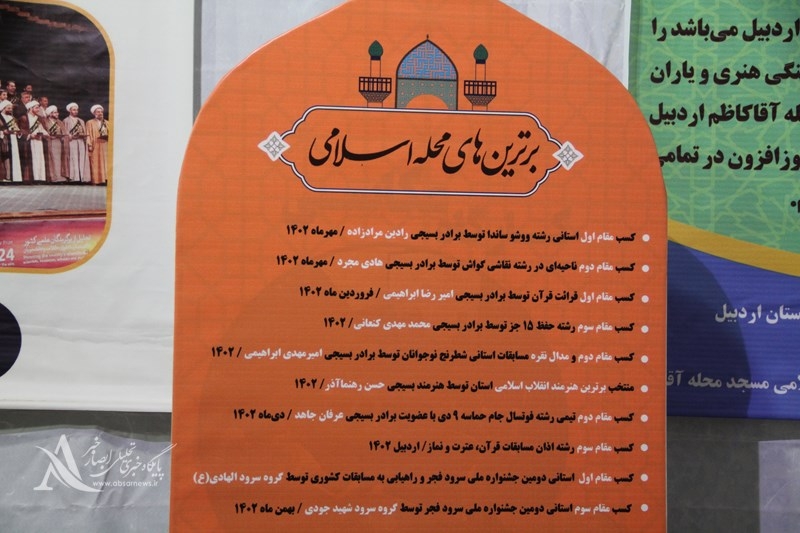 برترین های محله اسلامی
کسب مقام اول استانی رشته ووشو ساندا توسط برادر بسیجی رادین مرادزاده / مهرماه ۱۴۰۲
کسب مقام دوم ناحیه‌ای در رشته نقاشی گواش توسط برادر بسیجی هادی مجرد / مهرماه ۱۴۰۲
کسب مقام اول قرائت قرآن توسط برادر بسیجی امیر رضا ابراهیمی / فروردین ماه ۱۴۰۲
کسب مقام سوم رشته حفظ ۱۵ جز توسط برادر بسیجی محمد مهدی کنعانی/ ۱۴۰۲
کسب مقام دوم و مدال نقره مسابقات استانی شطرنج نوجوانان توسط برادر بسیجی امیرمهدی ابراهیمی / ۱۴۰۲
منتخب برترین هنرمند انقلاب اسلامی استان توسط هنرمند بسیجی حسن رهنماآذر/ ۱۴۰۲
کسب مقام دوم تیمی رشته فوتسال جام حماسه ۹ دی با عضویت برادر بسیجی عرفان جاهد / دی‌ماه ۱۴۰۲
کسب مقام سوم رشته اذان مسابقات قرآن، عترت و نماز/ اردبیل ۱۴۰۲
کسب مقام اول استانی دومین جشنواره ملی سرود فجر و راهیابی به مسابقات کشوری توسط گروه سرود الهادی(ع)
کسب مقام سوم استانی دومین جشنواره ملی سرود فجر توسط گروه سرود شهید جودی / بهمن ماه ۱۴۰۲
اردبیل می‌باشد را
هنری و یاران
آقاکاظم اردبیل
روزافزون در تمامی
ستان اردبیل
مسجد محله آقا
24
پایگاه خبری تحلیلی ابصار خبر
www.absarnews.ir